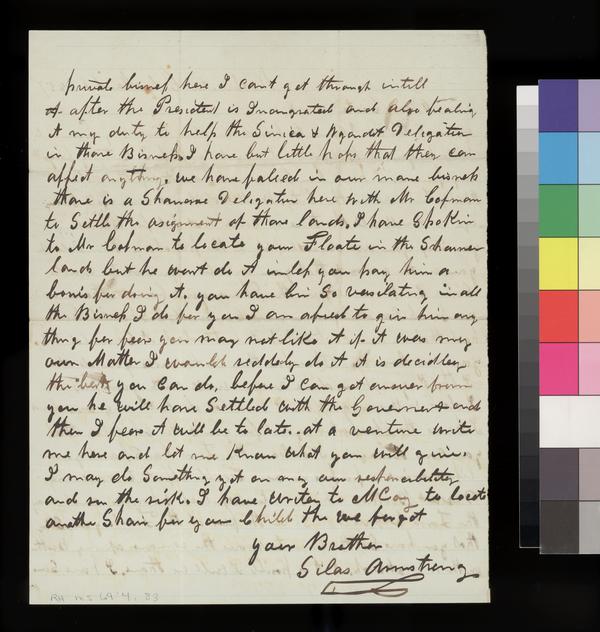 private bisness here I cant get through intill
after the President is Inaugrated and also fealing
it my duty to help the Sinica & Wyandot Deligation
in thare Bisness, I have but little hops that they can
affect anything, we have faled in our mane bisness
thare is a Shawnee Deligation here with Mr Cofman
to Settle the asignment of thare lands, I have Spokin
to Mr Cofman to locate your Floate in the Shawnee
lands but he wont do it inless you pay him a
bonis for doing it. you have bin So vasilating in all
the Bisness I do for you I am afread to give him any
thing for fear you may not like it if it was my
own Matter I would reddely do it it is decidley
the best you can do, before I can get answer from
you he will have Settled with the Goverment and
then I fear it will be to late. at a venture write
me here and let me Know what you will give.
I may do Something yet on my own responcibility
and run the risk. I have writen to McCoy to locate
anothe Shair for your Child the we forgot
your Brother
Silas Armstrong
RH MS 69:4.33